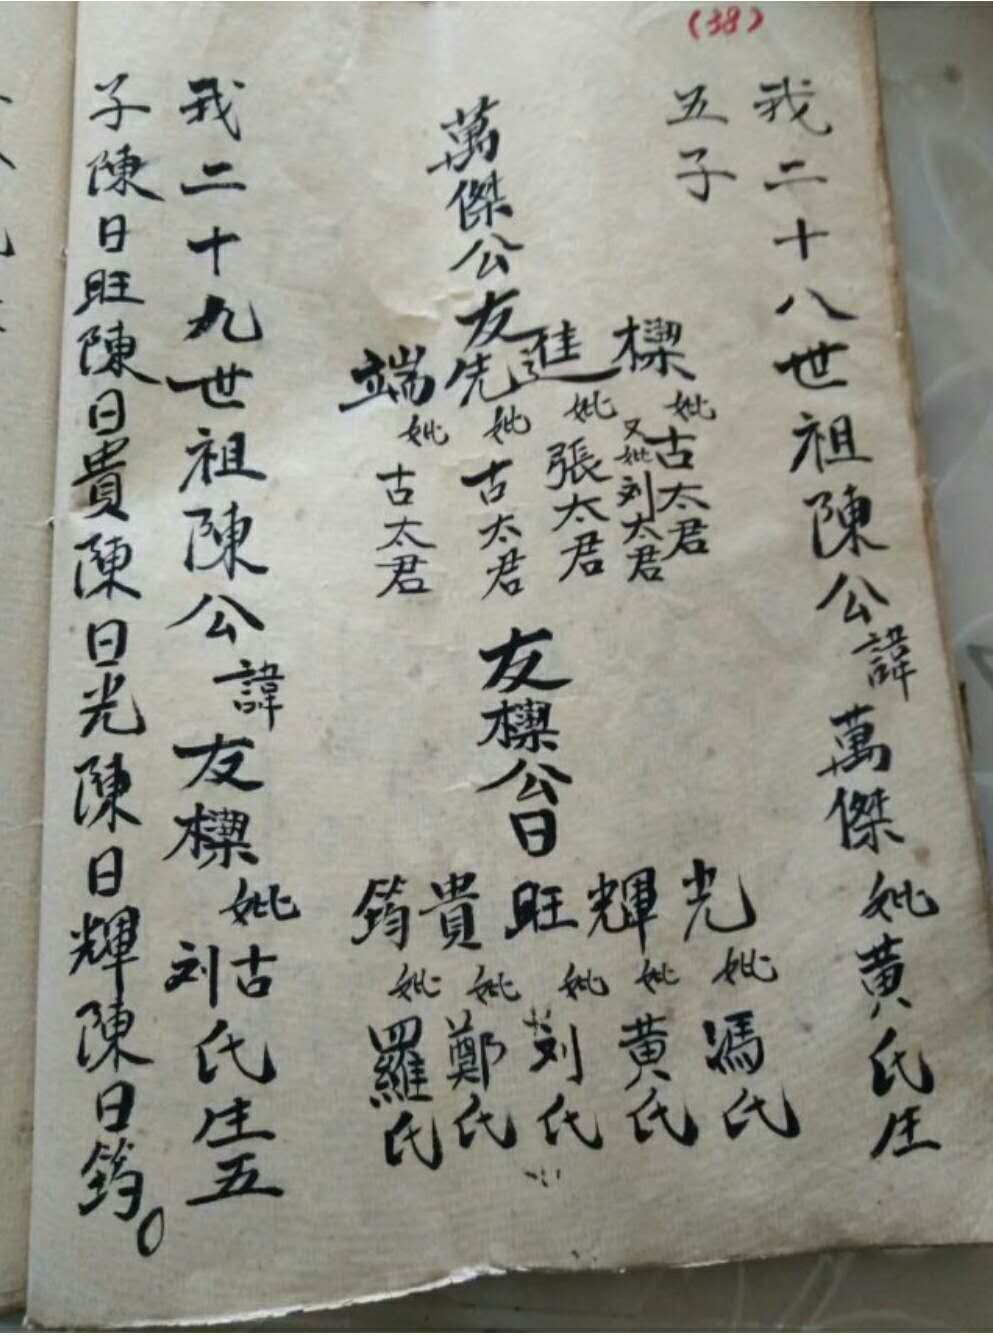 (38)
我二十八世祖陳公諱萬傑妣黃氏生
五子
萬傑公友
樑妣古太君
又妣刘太君
進妣張太君
先妣古太君
端妣古太君
友樑公日
光妣馮氏
輝妣黃氏
旺妣刘氏
貴妣鄭氏
筠妣羅氏
我二十九世祖陳公諱友樑妣古刘氏生五
子陳日旺陳日貴陳日光陳日輝陳日筠。